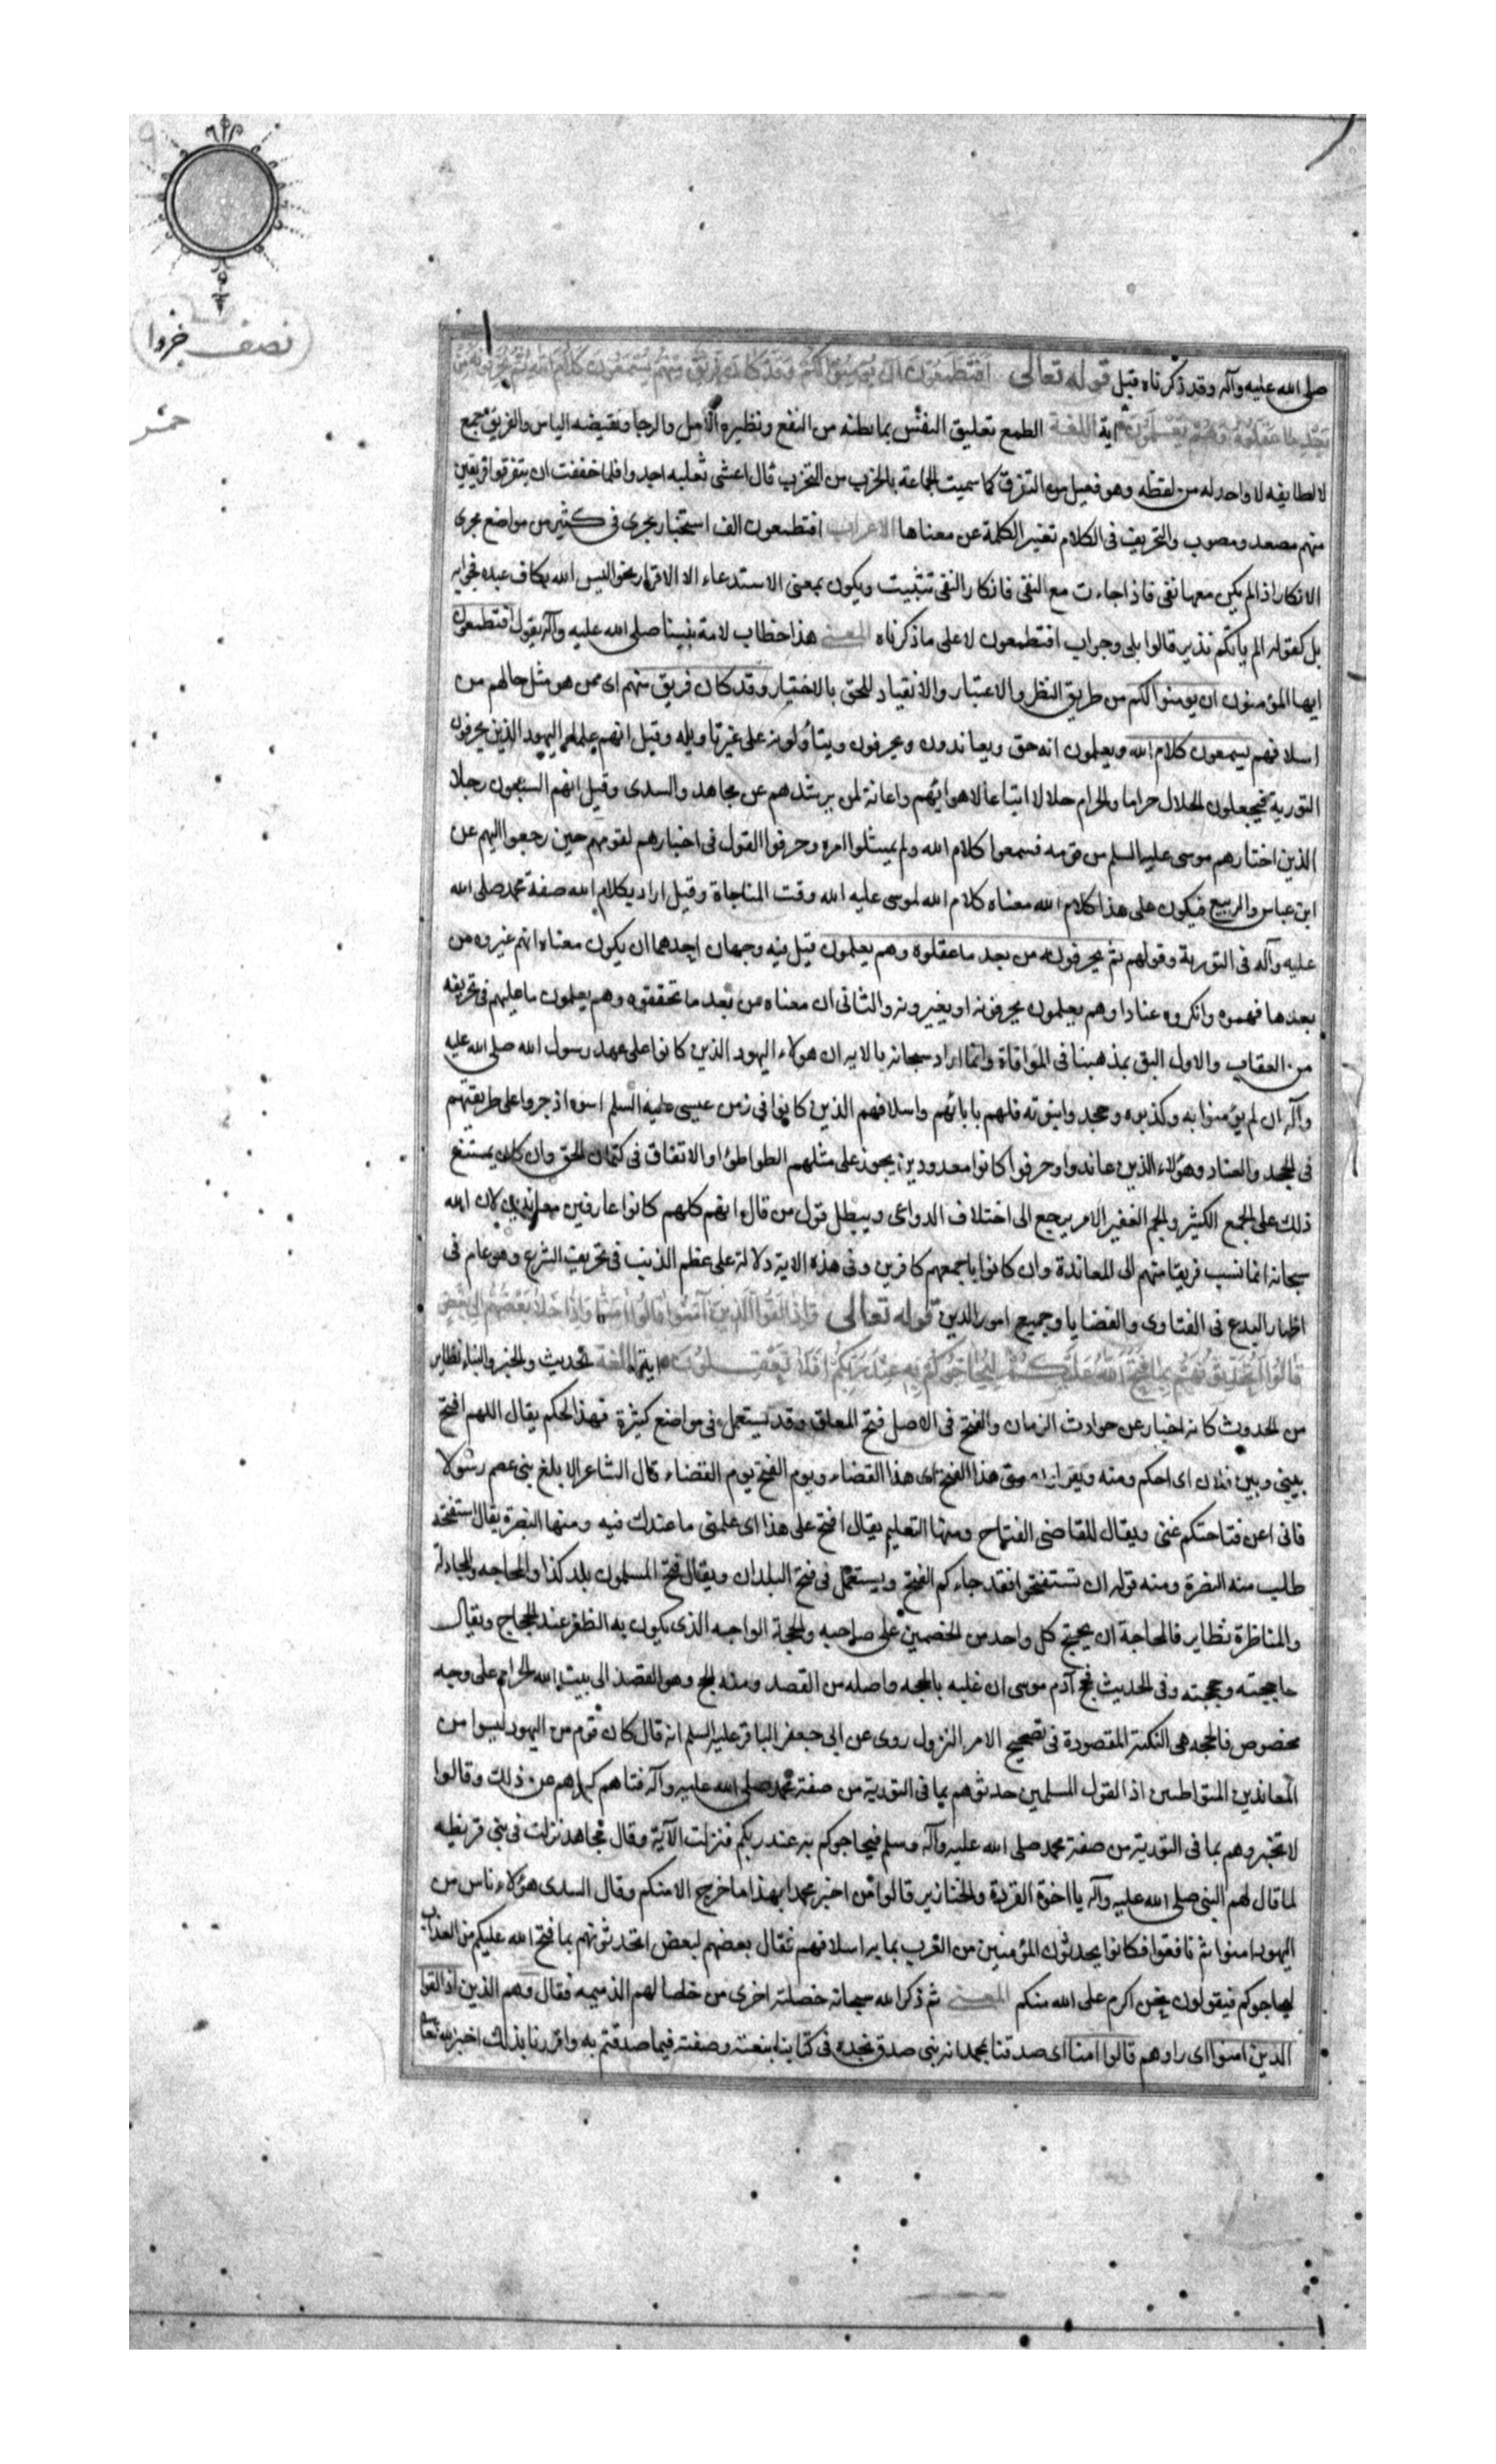 نصف جزو
صلى الله عليه وآله وقد ذكرناه قبل قوله تعالى افتطمعون ان يؤمنوا لكم وقد كان فريق منهم يسمعون كلام الله ثم يحرفونه من
بعد ما عقلوه وهم يعلمون آية اللغة الطمع تعليق النفس بما يظنه من النفع ونظيره الامل والرجا ونقيضه الياس والفريق جمع
كالطايفه لا واحد له من لفظه وهو فعيل من التفرق كما سميت الجماعة بالحزب من التحزب قال اعشى ثعلبه اجدوا فلما خففت ان يتفرقوا فريقين
منهم مصعد ومصوب والتحريف فى الكلام تغيير الكلمة عن معناها الاعراب افتطمعون الف استخبار يجرى فى كثير من مواضع مجرى
الانكار اذا لم يكن معها نفى فاذا جاءت مع النفى فانكار النفى تثبيت ويكون بمعنى الاستدعاء الا الاقرار نحو اليس الله بكاف عبده فجوابه
بلى كقوله الم ياتكم نذير قالوا بلى وجواب افتطمعون لا على ما ذكرناه المعنى هذا خطاب لامة نبينا صلى الله عليه وآله يقول افتطمعون
ايها المؤمنون ان يومنوا لكم من طريق النظر والاعتبار والانقياد للحق بالاختيار وقد كان فريق منهم اى ممن هو مثل حالهم من
اسلافهم يسمعون كلام الله ويعلمون انه حق ويعاندون ويحرفون ويتأولونه على غير تاويله وقيل انهم علماء اليهود الذين يحرفون
التورية فيجعلون الحلال حراما والحرام حلالا اتباعا لاهوائهم واعانة لمن يرشدهم عن مجاهد والسدى وقيل انهم السبعون رجلا
الذين اختارهم موسى عليه السلم من قومه فسمعوا كلام الله ولم يمتثلوا امره وحرفوا القول فى اخبارهم لقومهم حين رجعوا اليهم عن
ابن عباس والربيع فيكون على هذا كلام الله معناه كلام الله لموسى عليه الله وقت المناجاة وقيل اراد بكلام الله صفة محمد صلى الله
عليه وآله فى التورية وقولهم ثم يحرفونه من بعد ما عقلوه وهم يعلمون قيل فيه وجهان احدهما ان يكون معناه انهم غيروه من
بعد ما فهموه وانكروه عنادا وهم يعلمون يحرفونه او يغيرونه والثانى ان معناه من بعد ما تحققوه وهم يعلمون ما عليهم فى تحريفه
من العقاب والاول اليق بمذهبنا فى الموافاة وانما اراد سبحانه بالايه ان هولاء اليهود الذين كانوا على عهد رسول الله صلى الله عليه
وآله ان لم يؤمنوا به وكذبوه وجحدوا نبوته فلهم بابائهم واسلافهم الذين كانوا فى زمن عيسى عليه السلم اسوه اذ جروا على طريقتهم
فى الجحد والعناد وهؤلاء الذين عاندوا وحرفوا كانوا معدودين يجوز على مثلهم الطواطؤ او الاتفاق فى كتمان الحق وان كان يمتنع
ذلك على الجمع الكثير والجم الغفير الامر يرجع الى اختلاف الدواعى ويبطل قول من قال انهم كلهم كانوا عارفين معاندين لان الله
سبحانه انما نسب فريقا منهم الى المعاندة وان كانوا باجمعهم كافرين وفى هذه الاية دلالة على عظم الذنب فى تحريف الشرع وهو عام فى
اظهار البدع فى الفتاوى والقضايا وجميع امور الدين قوله تعالى واذا لقوا الذين آمنوا قالوا امنا واذا خلا بعضهم الى بعض
قالوا اتحدثونهم بما فتح الله عليكم ليحاجوكم به عند ربكم افلا تعقلون اية اللغة الحديث والخبر والنباء نظاير
من الحدوث كانه اخبار عن حوادث الزمان والفتح فى الاصل فتح المغلق وقد يستعمل فى مواضع كثيرة فهذا الحكم يقال اللهم افتح
بينى وبين فلان اى احكم ومنه ويقولون متى هذا الفتح اى هذا القضاء ويوم الفتح يوم القضاء قال الشاعر الا بلغ بنى عصم رسولا
فانى اعن فتاحتكم غنى ويقال للقاضى الفتاح ومنها التعليم يقال افتح على هذا اى علمنى ما عندك فيه ومنها النصرة يقال استفتحه
طلب منه النصرة ومنه قوله ان تستفتحوا فقد جاءكم الفتح ويستعمل فى فتح البلدان ويقال فتح المسلمون بلد كذا والمحاجه والمجادلة
والمناظرة نظاير فالمحاجة ان يحتج كل واحد من الخصمين على صاحبه والحجة الواجبه الذى يكون به الظفر عند الحجاج ويقال
حاججته وحججته وفى الحديث فحج آدم موسى ان غلبه بالحجه واصله من القصد ومنه الحج وهو القصد الى بيت الله الحرام على وجه
مخصوص فالحجه هى النكتة المقصودة فى تصحيح الامر النزول روى عن ابى جعفر الباقر عليه السلم انه قال كان قوم من اليهود ليسوا من
المعاندين المتواطئين اذا لقوا المسلمين حدثوهم بما فى التورية من صفة محمد صلى الله عليه وآله فنهاهم كبراهم عن ذلك وقالوا
لا تخبروهم بما فى التورية من صفة محمد صلى الله عليه وآله وسلم فيحاجوكم به عند ربكم فنزلت الآية وقال مجاهد نزلت فى بنى قريظه
لما قال لهم النبى صلى الله عليه وآله يا اخوة القردة والخنازير قالوا من اخبر محمدا بهذا ما خرج الا منكم وقال السدى هؤلاء ناس من
اليهود امنوا ثم نافقوا فكانوا يحدثون المؤمنين من العرب بما به اسلافهم فقال بعضهم لبعض اتحدثونهم بما فتح الله عليكم من العذاب
ليحاجوكم فيقولون نحن اكرم على الله منكم المعنى ثم ذكر الله سبحانه خصلة اخرى من خصالهم الذميمه فقال وهم الذين اذا لقوا
الذين امنوا اى راوهم قالوا امنا اى صدقنا بمحمد انه نبى صدق نجده فى كتابنا بنعته وصفته فيما صدقتم به واقررنا بذلك اخبر الله تعالى